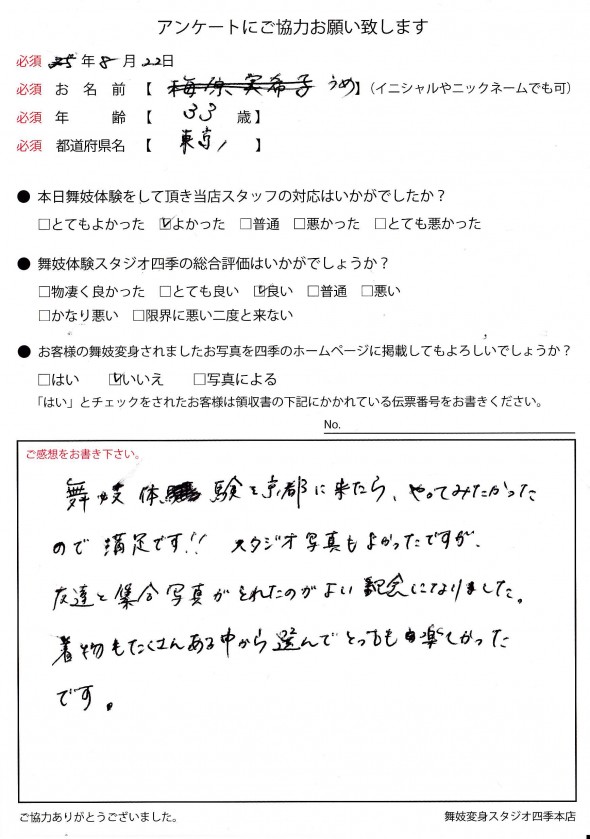 アンケートにご協力お願い致します
必須 25年8月22日
必須 お名前【 うめ】（イニシャルやニックネームでも可）
必須 年齢【 33 歳】
必須 都道府県名【 東京 】
● 本日舞妓体験をして頂き当店スタッフの対応はいかがでしたか？
□とてもよかった ☑よかった □普通 □悪かった □とても悪かった
● 舞妓体験スタジオ四季の総合評価はいかがでしょうか？
□物凄く良かった □とても良い ☑良い □普通 □悪い
□かなり悪い □限界に悪い二度と来ない
● お客様の舞妓変身されましたお写真を四季のホームページに掲載してもよろしいでしょうか？
□はい ☑いいえ □写真による
「はい」とチェックをされたお客様は領収書の下記にかかれている伝票番号をお書きください。
No.
ご感想をお書き下さい。
舞妓体験を京都に来たら、やってみたかった
ので満足です!! スタジオ写真もよかったですが、
友達と集合写真がとれたのがよい記念になりました。
着物もたくさんある中から選んでとっても楽しかった
です。
ご協力ありがとうございました。
舞妓変身スタジオ四季本店